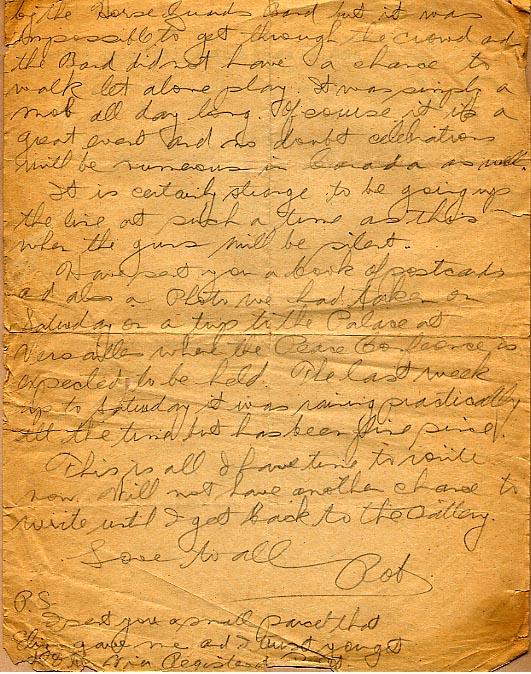 by the Horse Guards Band but it was
impossible to get through the crowd and
the Band did not have a chance to
walk let alone play. It was simply a
mob all day long. Of course it is a
great event and no doubt celebrations
will be numerous in Canada as well.
It is certainly strange to be going up
the line at such a time as this
when the guns will be silent.
Have sent you a book of postcards
and also a Photo we had taken on
Saturday on a trip to the Palace at
Versailles where the Peace Conference is
expected to be held. The last week
up to Saturday it was raining practically
all the time but has been fine since.
This is all I have time to write
now. Will not have another chance to
write until I get back to the Battery.
Love to all
Rob
P.S.
I sent you a small parcel that
gave me and I trust you get
Registered Post